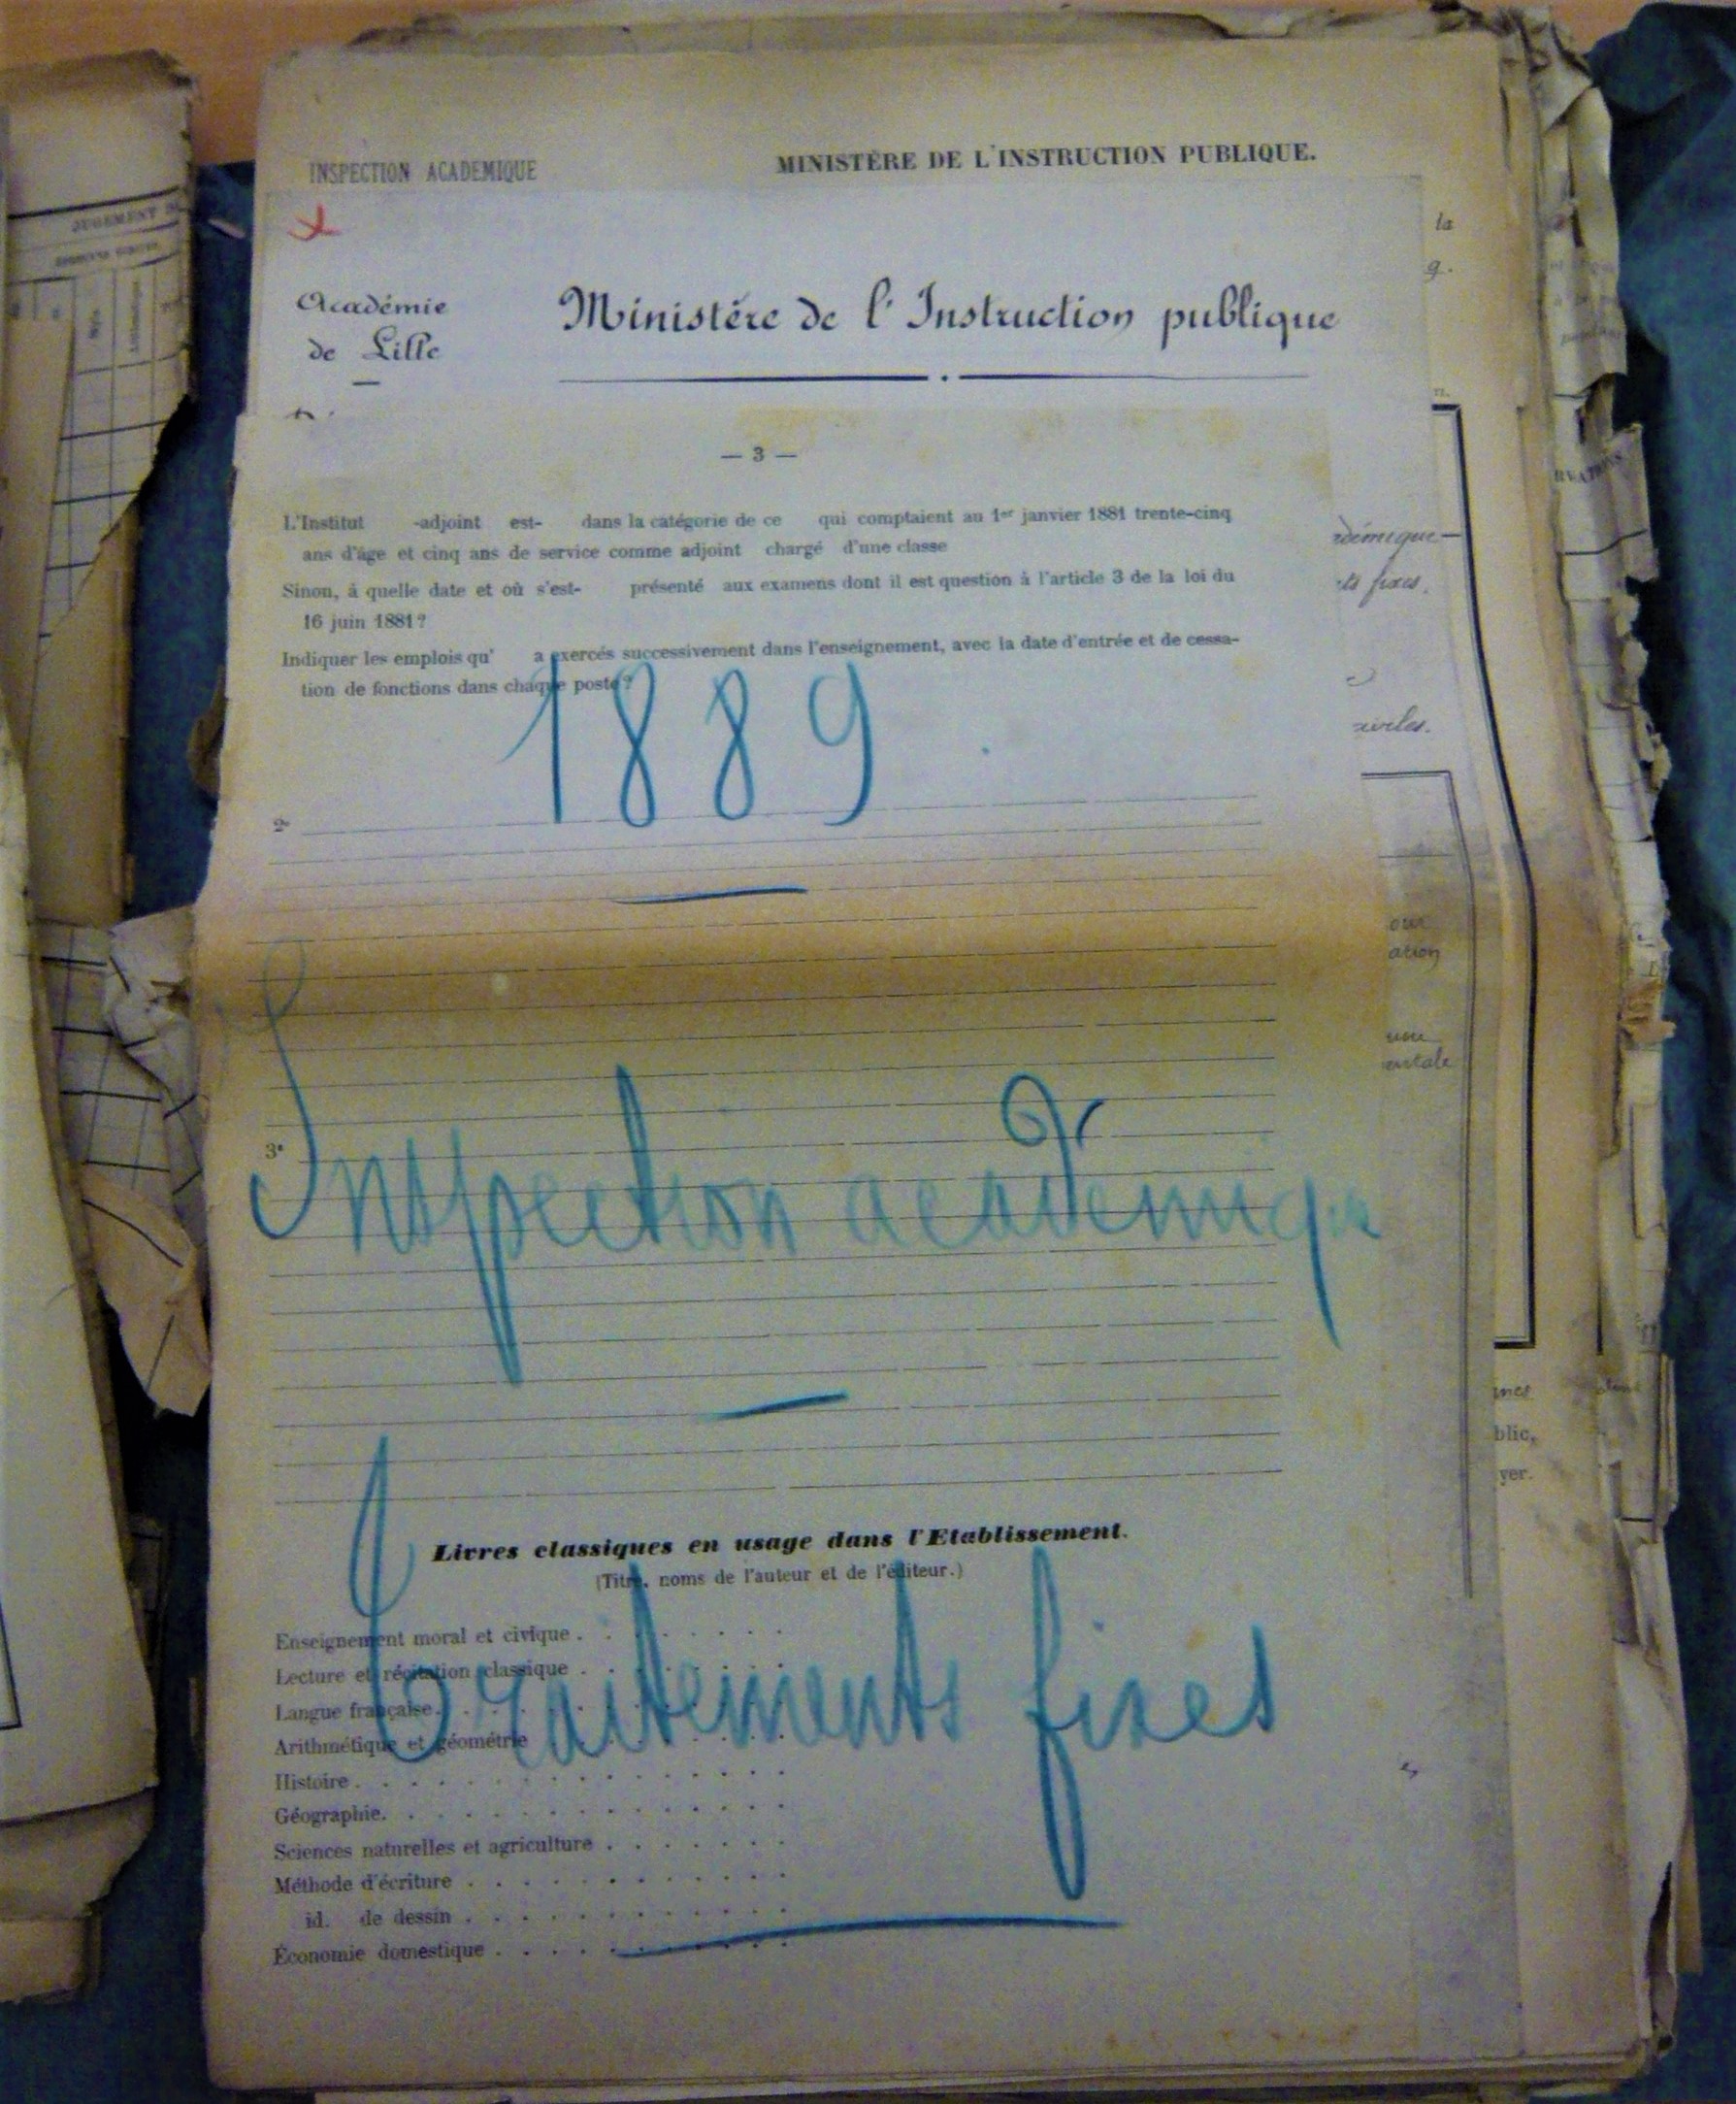 INSPECTION ACADEMIQUE
MINISTÈRE DE L'INSTRUCTION PUBLIQUE.
Académie
de Lille
Ministère de l'Instruction publique
— 3 —
L'Institut -adjoint est- dans la catégorie de ce qui comptaient au 1er janvier 1881 trente-cinq
ans d'âge et cinq ans de service comme adjoint chargé d'une classe
Sinon, à quelle date et où s'est- présenté aux examens dont il est question à l'article 3 de la loi du
16 juin 1881?
Indiquer les emplois qu' a exercés successivement dans l'enseignement, avec la date d'entrée et de cessa-
tion de fonctions dans chaque poste?
1889
2°
3°
Inspection académique
Livres classiques en usage dans l'Etablissement.
(Titre, noms de l'auteur et de l'éditeur.)
Traitements fixes
Enseignement moral et civique . . . . . . .
Lecture et récitation classique . . . . . . .
Langue française. . . . . . . . . . .
Arithmétique et géométrie . . . . . . . .
Histoire . . . . . . . . . . . . .
Géographie. . . . . . . . . . . . .
Sciences naturelles et agriculture . . . . . . .
Méthode d'écriture . . . . . . . . . .
id. de dessin . . . . . . . . . . .
Économie domestique . . . . . . . . . .
JUGEMENT
la
g.
démique
ts fixes.
viles.
our
ation
une
entale
blic,
yer.